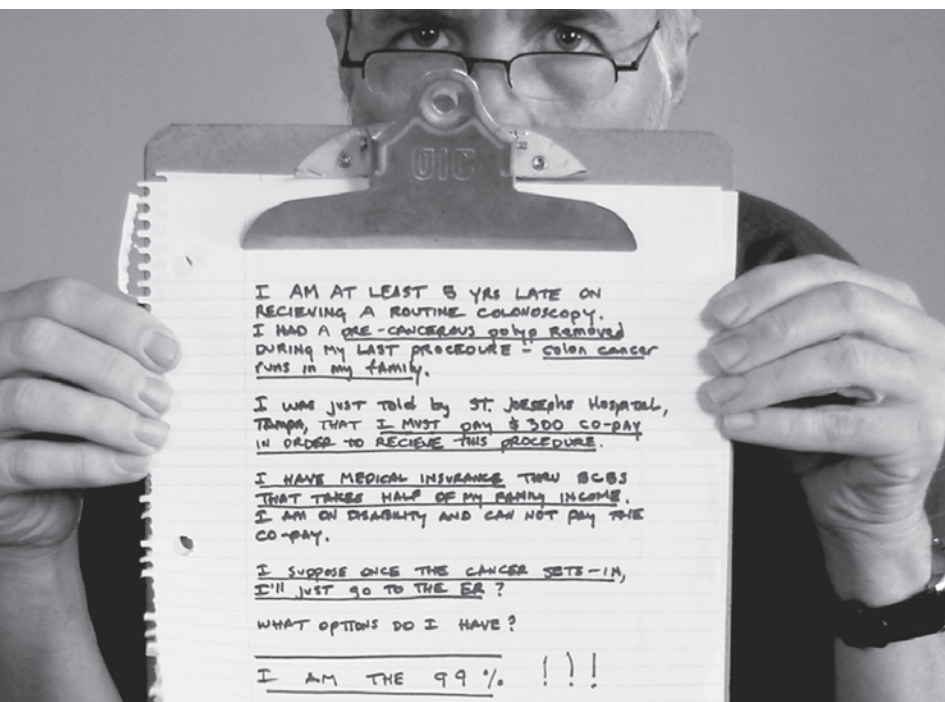 OIC
I AM AT LEAST 5 YRS LATE ON
RECIEVING A ROUTINE COLONOSCOPY.
I HAD A PRE-CANCEROUS polyp Removed
DURING MY LAST PROCEDURE - colon cancer
runs in my family.
I WAS JUST TOLD by ST. JOESEPHS HOSPITAL,
TAMPA, THAT I MUST PAY $300 CO-PAY
IN ORDER TO RECIEVE THIS PROCEDURE.
I HAVE MEDICAL INSURANCE THRU BCBS
THAT TAKES HALF OF MY FAMILY INCOME.
I AM ON DISABILITY AND CAN NOT PAY THE
CO-PAY.
I SUPPOSE ONCE THE CANCER SETS-IN,
I'll JUST go TO THE ER?
WHAT OPTIONS DO I HAVE?
I AM THE 99% !!!